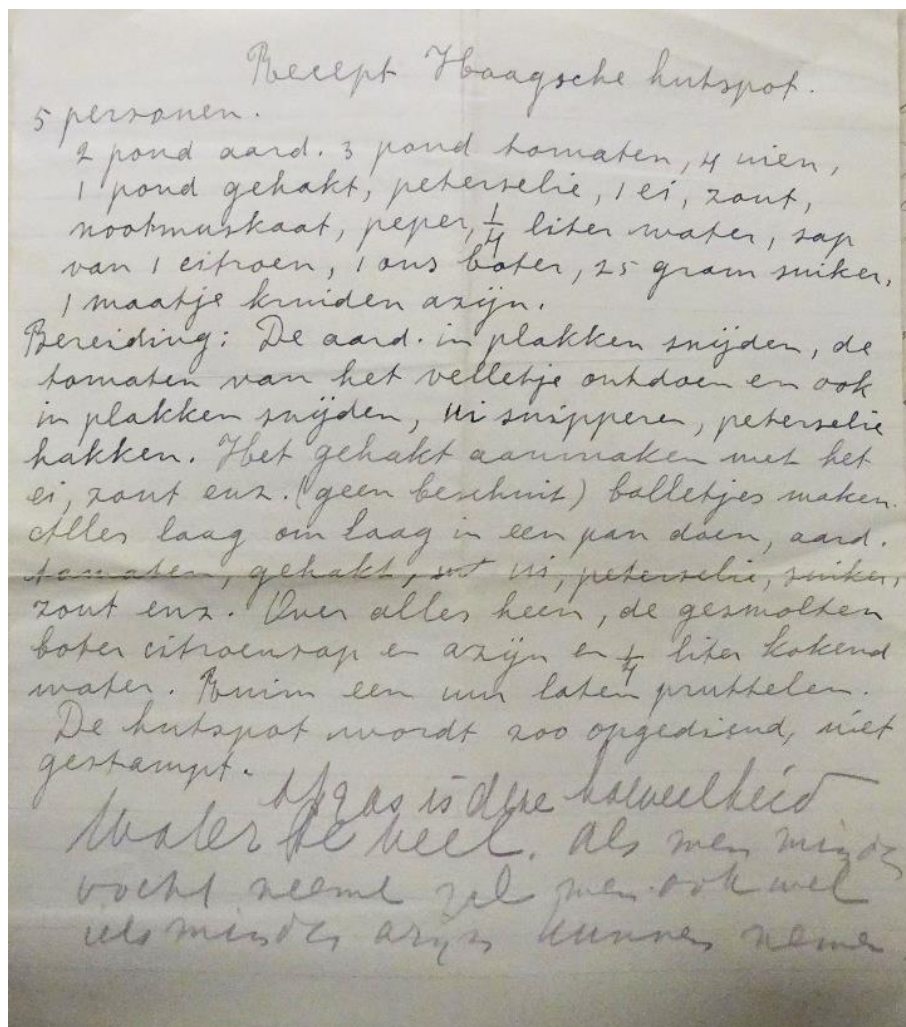 Recept Haagsche hutspot.
5 personen.
2 pond aard. 3 pond tomaten, 4 uien,
1 pond gehakt, peterselie, 1 ei, zout,
nootmuskaat, peper, 1/4 liter water, sap
van 1 citroen, 1 ons boter, 25 gram suiker,
1 maatje kruiden azijn.
Bereiding: De aard. in plakken snijden, de
tomaten van het velletje ontdoen en ook
in plakken snijden, ui snipperen, peterselie
hakken. Het gehakt aanmaken met het
ei, zout enz. (geen beschuit) balletjes maken.
Alles laag om laag in een pan doen, aard.
tomaten, gehakt, ui, peterselie, suiker,
zout enz. Over alles heen, de gesmolten
boter citroensap en azijn en 1/4 liter kokend
water. Ruim een uur laten pruttelen.
De hutspot wordt zoo opgediend, niet
gestampt.
Op gas is deze hoeveelheid
Water te veel. Als men minder
vocht neemt zal men ook wel
iets minder azijn kunnen nemen